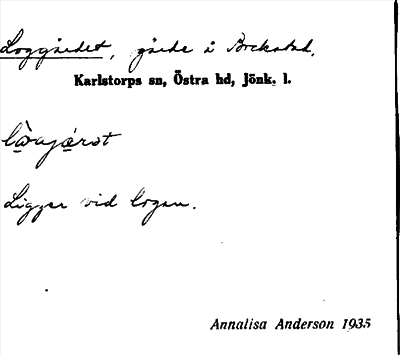 Loggärdet, gärde å Brekstad.
Karlstorps sn, Östra hd, Jönk. l.
Ligger vid logen.
Annalisa Anderson 1935